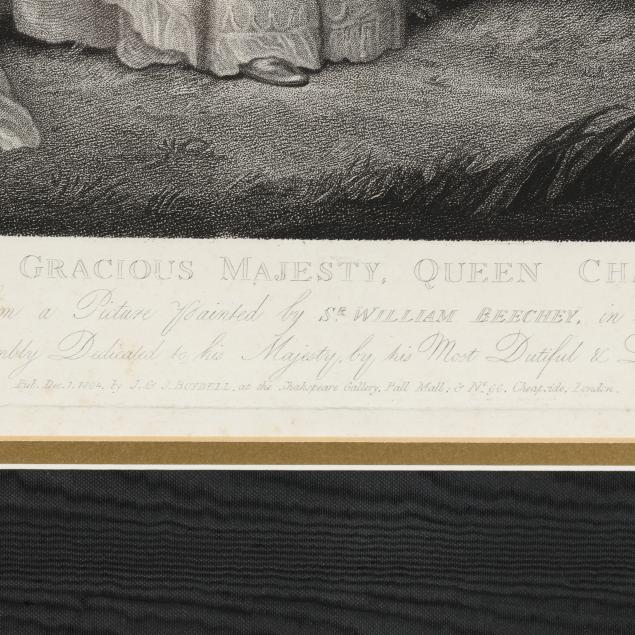 GRACIOUS MAJESTY, QUEEN
a Picture Painted by SR. WILLIAM BEECHEY, in
Dedicated to his Majesty, by his Most Dutiful &
Pub. Dec. 1, 1804, by J. & J. BOYDELL, at the Shakspeare Gallery, Pall Mall; & No. 90, Cheapside, London.